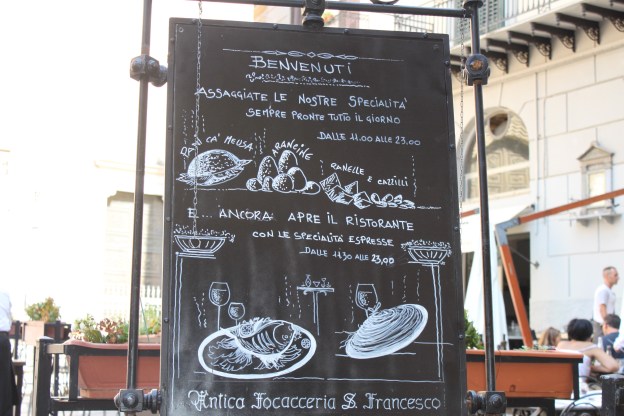 BENVENUTI
ASSAGGIATE LE NOSTRE SPECIALITA'
SEMPRE PRONTE TUTTO IL GIORNO
DALLE 11.00 ALLE 23,00
PANI CA' MEUSA
ARANCINE
PANELLE E CAZZILLI
E... ANCORA APRE IL RISTORANTE
CON LE SPECIALITÀ ESPRESSE
DALLE 11.30 ALLE 23,00
Antica Focacceria S. Francesco